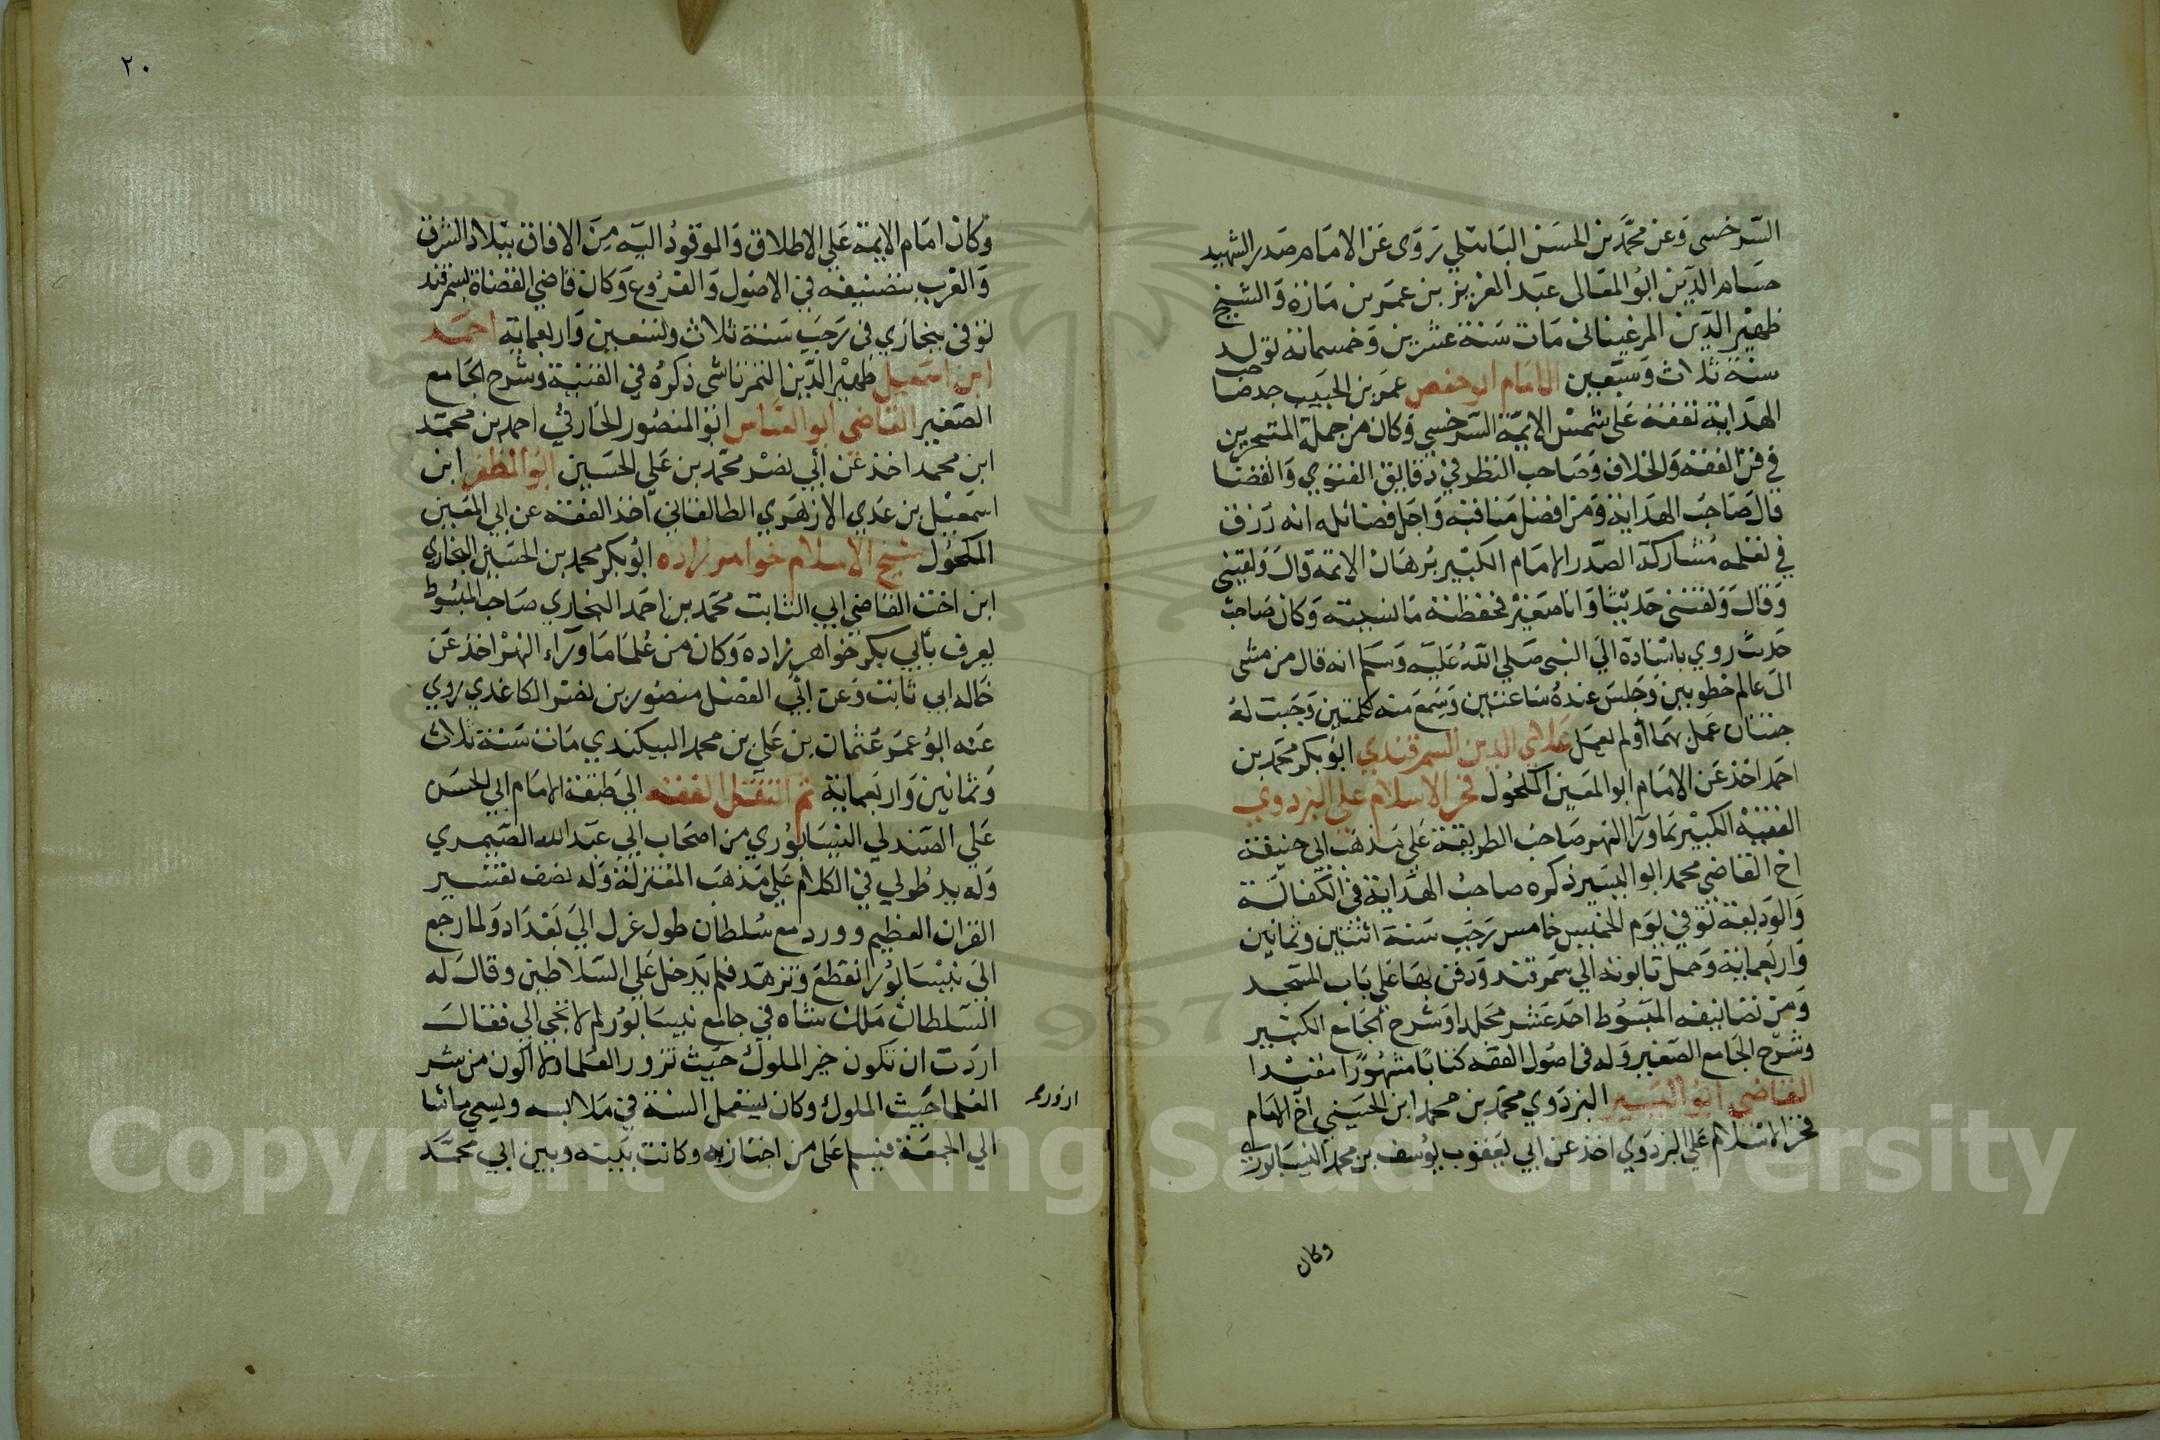 السرخسي وعن محمد بن الحسن البانكي روى عن الامام صدر الشهيد
حسام الدين ابو المعالى عبد العزيز بن عمر بن مازه والشيخ
ظهير الدين المرغينانى مات سنة عشرين وخمسمائه تولد
سنة ثلاث وسبعين الامام ابو حفص عمر بن الحبيب جد صاحب
الهداية تفقه على شمس الايمة السرخسي وكان من جملة المتبحرين
في فن الفقه والخلاف وصاحب النظر في دقايق الفتوي والقضا
قال صاحب الهداية ومن افضل مناقبه واجل فضائله انه رزق
في تعلمه مشاركة الصدر الامام الكبير برهان الائمة قال ولقيني
وقال ولقنني حديثا وانا صغير فحفظته ما نسيته وكان صاحب
حديث روي باسناده الي النبي صلي الله عليه وسلم انه قال من مشى
الى عالم خطوبين وجلس عنده ساعتين وسمع منه كلمتين وجبت له
جنتان عمل بهما او لم يعمل علاي الدين السمرقندي ابو بكر محمد بن
احمد اخذ عن الامام ابو المعين المكحول فخر الاسلام علي البزدوي
الفقيه الكبير بما ورا النهر صاحب الطريقة علي مذهب ابي حنيفة
اخ القاضي محمد ابو اليسير ذكره صاحب الهداية في الكفالة
والوديعة توفي يوم الخميس خامس رجب سنة اثنتين وثمانين
واربعماية وحمل تابوته الي سمرقند ودفن بها علي باب المسجد
ومن تصانيفه المبسوط احد عشر مجلدا وشرح الجامع الكبير
وشرح الجامع الصغير وله فى اصول الفقه كتابا مشهورا مفيدا
القاضي ابو اليسير البزدوي محمد بن محمد ابن الحسين اخ الامام
فخر الاسلام علي البزدوي اخذ عن ابي يعقوب يوسف بن محمد النيسابوري
وكان
٢٠
وكان امام الايمة علي الاطلاق والموقود اليه من الافاق ببلاد الشرق
والغرب بتصنيفه في الاصول والفروع وكان قاضي القضاة بسمرقند
توفى ببخاري فى رجب سنة ثلاث وتسعين واربعماية احمد
ابن اسمعيل ظهير الدين التمرتاشى ذكره في القنية وشرح الجامع
الصغير القاضى ابو العباس ابو المنصور الحارثي احمد بن محمد
ابن محمد اخذ عن ابي نصر محمد بن علي الحسين ابو المظفر ابن
اسمعيل بن عدي الازهري الطالقاني اخذ الفقه عن ابي المعين
المكحول شيخ الاسلام خواهر زاده ابو بكر محمد بن الحسين البخاري
ابن اخت القاضي ابي الثابت محمد بن احمد البخاري صاحب المبسوط
يعرف بابي بكر خواهر زاده وكان من علما ما ورآء النهر اخذ عن
خاله ابي ثابت وعن ابي الفضل منصور بن نصر الكاغدي روي
عنه ابو عمر عثمان بن علي بن محمد البيكندي مات سنة ثلاث
وثمانين واربعماية ثم انتقل الفقه الي طبقة الامام ابي الحسن
علي الصندلي النيسابوري من اصحاب ابي عبد الله الصيمري
وله يد طولي في الكلام علي مذهب المعتزلة وله نصف تفسير
القران العظيم وورد مع سلطان طول غرل الي بغداد ولما رجع
الي نيسابور انقطع وتزهد فلم يدخل علي السلاطين وقال له
السلطان ملك شاه في جامع نيسابور لم لا تجي الي فقال
اردت ان تكون خير الملوك حيث تزور العلما ولا اكون من شر
العلما حيث الملوك وكان يستعمل السنة في ملابسه ويسي ماشا
ازور
الي الجمعة فيسلم على من اجتاز به وكانت بينه وبين ابي محمد
Copyright © King Saud University